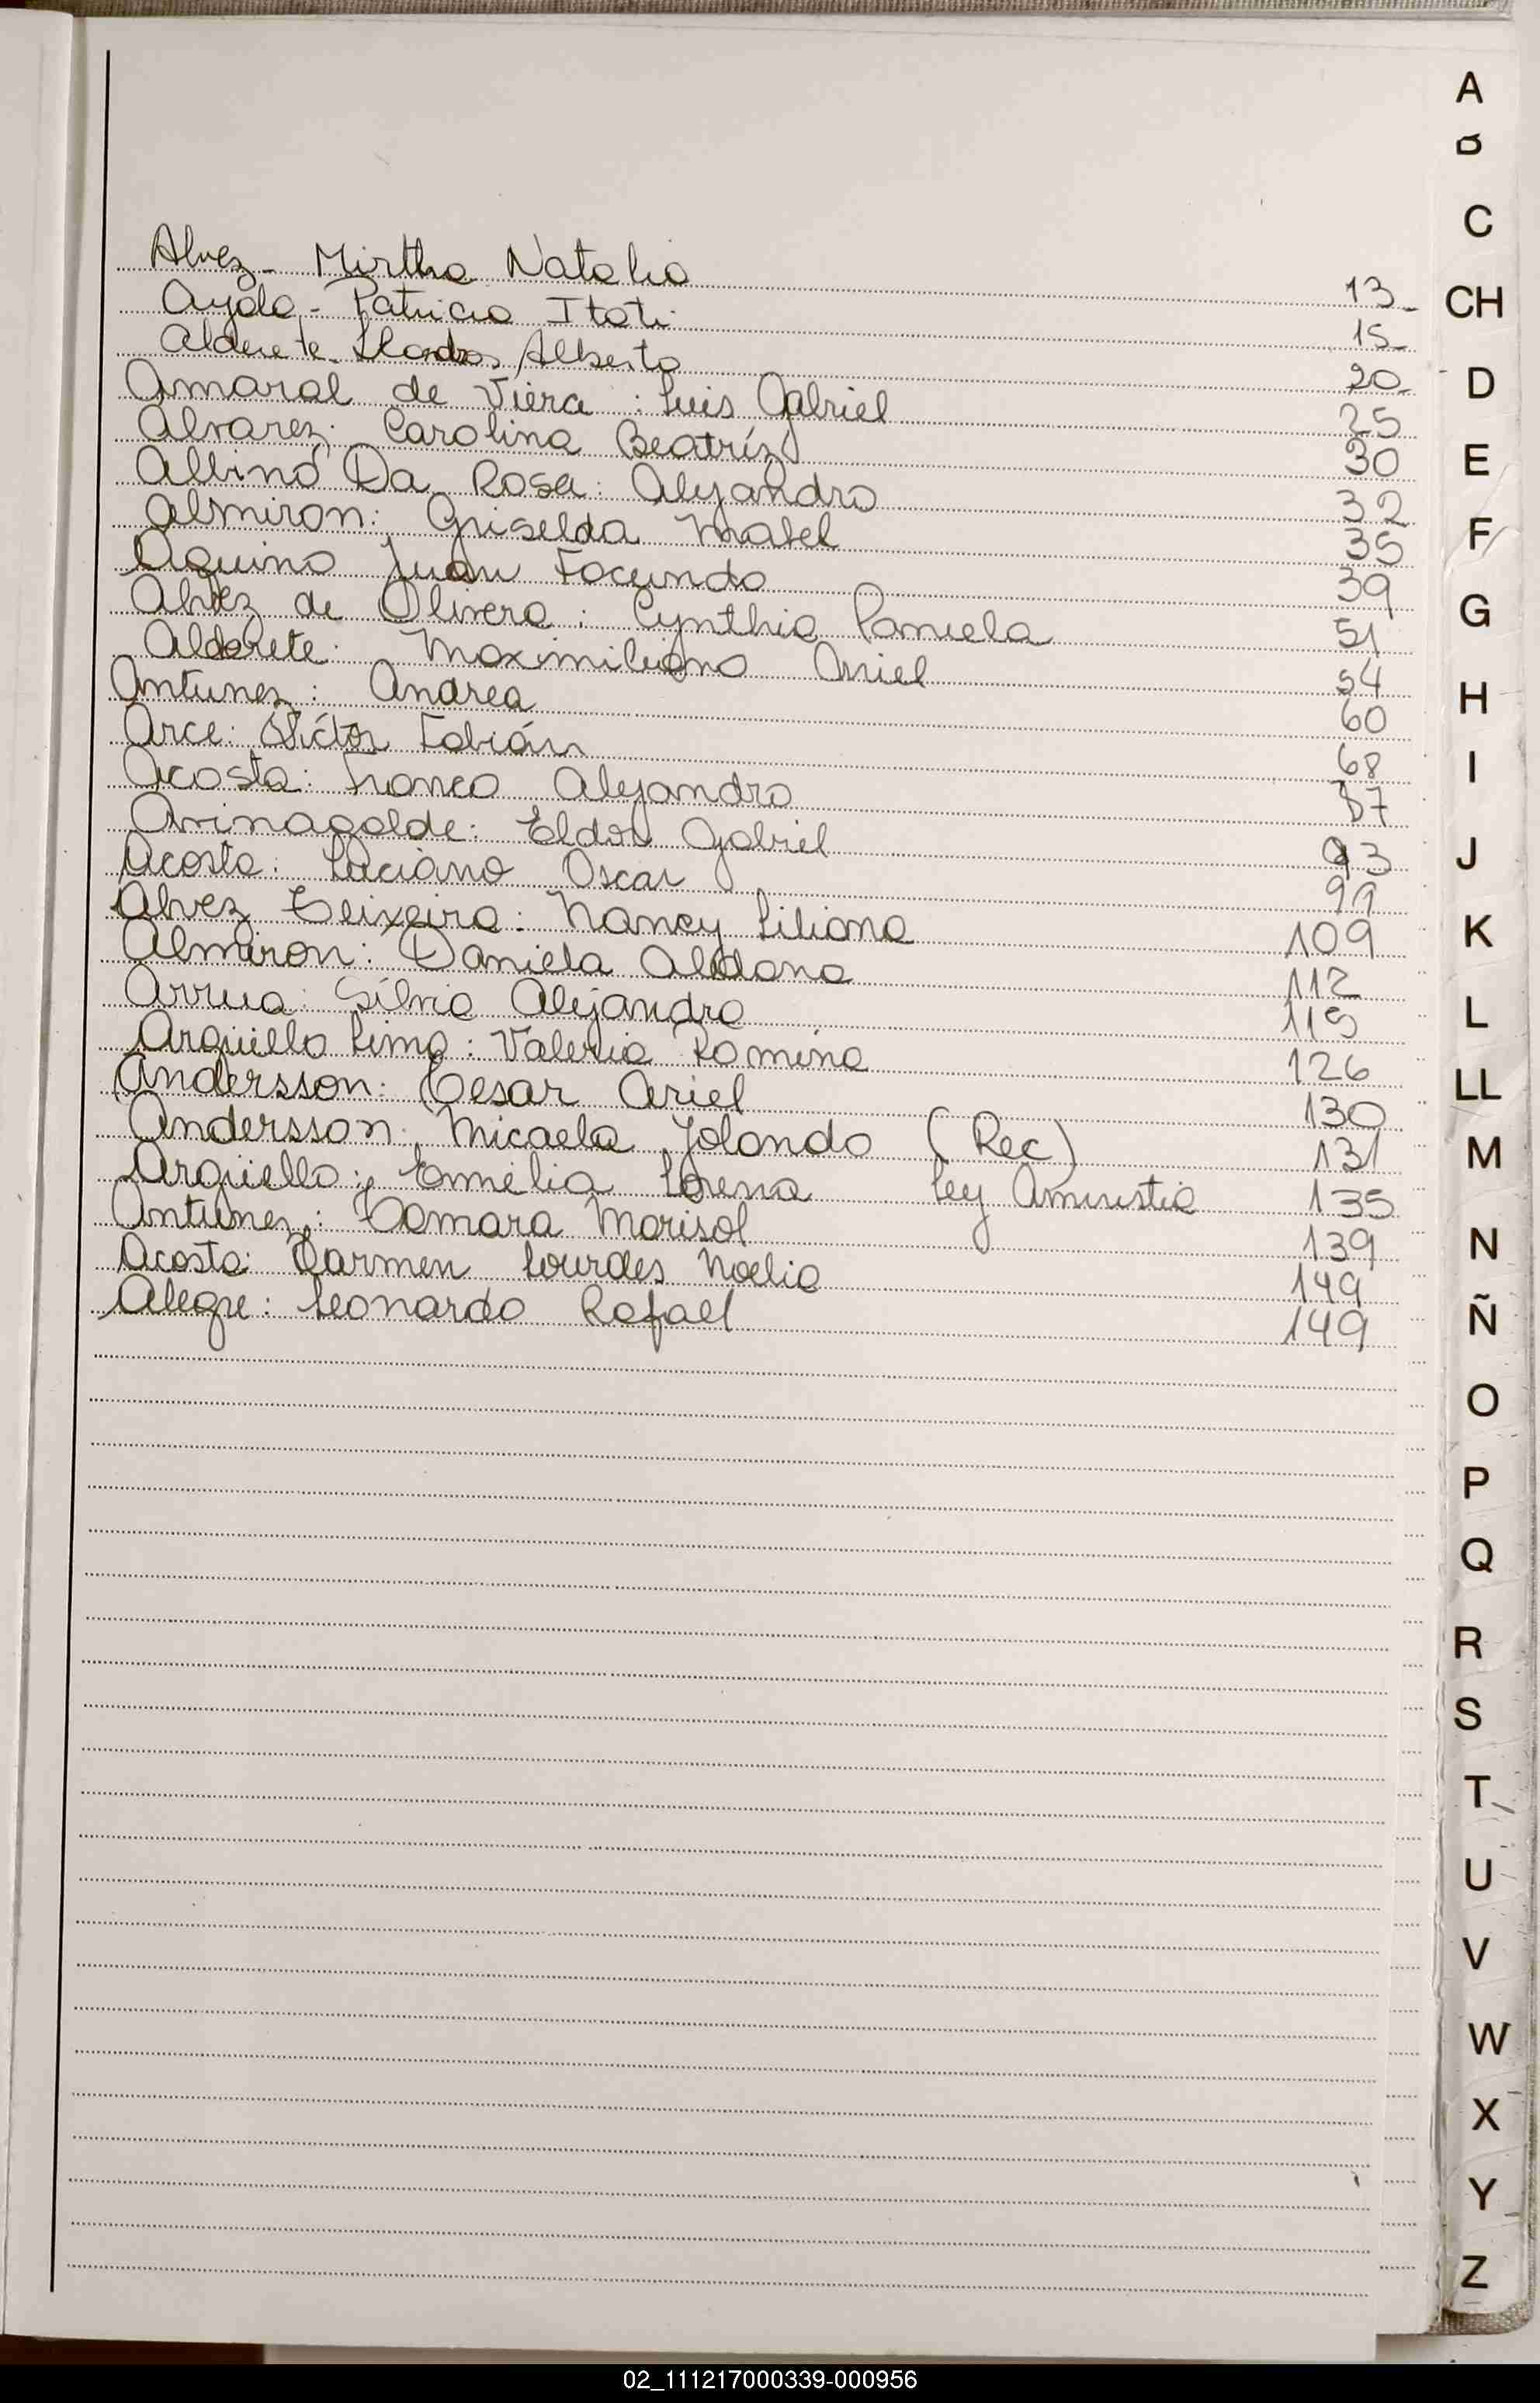 Alvez - Mirtha Natalia 13-
Ayala - Patricia Itati 15-
Alderete - Alberto 20-
Amaral de Viera : Luis Gabriel 25
Alvarez: Carolina Beatríz 30
Albino Da Rosa: Alejandro 32
Almiron: Griselda Mabel 35
Aquino Juan Facundo 39
Alvez de Olivera : Cynthia Pamela 51
Alderete: Maximiliano Ariel 54
Antunez : Andrea 60
Arce: Víctor Fabián 68
Acosta: Franco Alejandro 87
Arinagalde: Eldor Gabriel 93
Acosta: Luciano Oscar 99
Alvez Teixeira: Nancy Liliana 109
Almiron: Daniela Aldana 112
Arrua: Silvio Alejandro 115
Argüello Lima: Valeria Romina 126
Andersson: Cesar Ariel 130
Andersson: Micaela Yolanda (Rec) 131
Argüello: Emilia Lorena Ley Amnistia 135
Antunez: Tamara Marisol 139
Acosta: Carmen Lourdes Noelia 149
Alegre: Leonardo Rafael 149
A
B
C
CH
D
E
F
G
H
I
J
K
L
LL
M
N
Ñ
O
P
Q
R
S
T
U
V
W
X
Y
Z
02_111217000339-000956